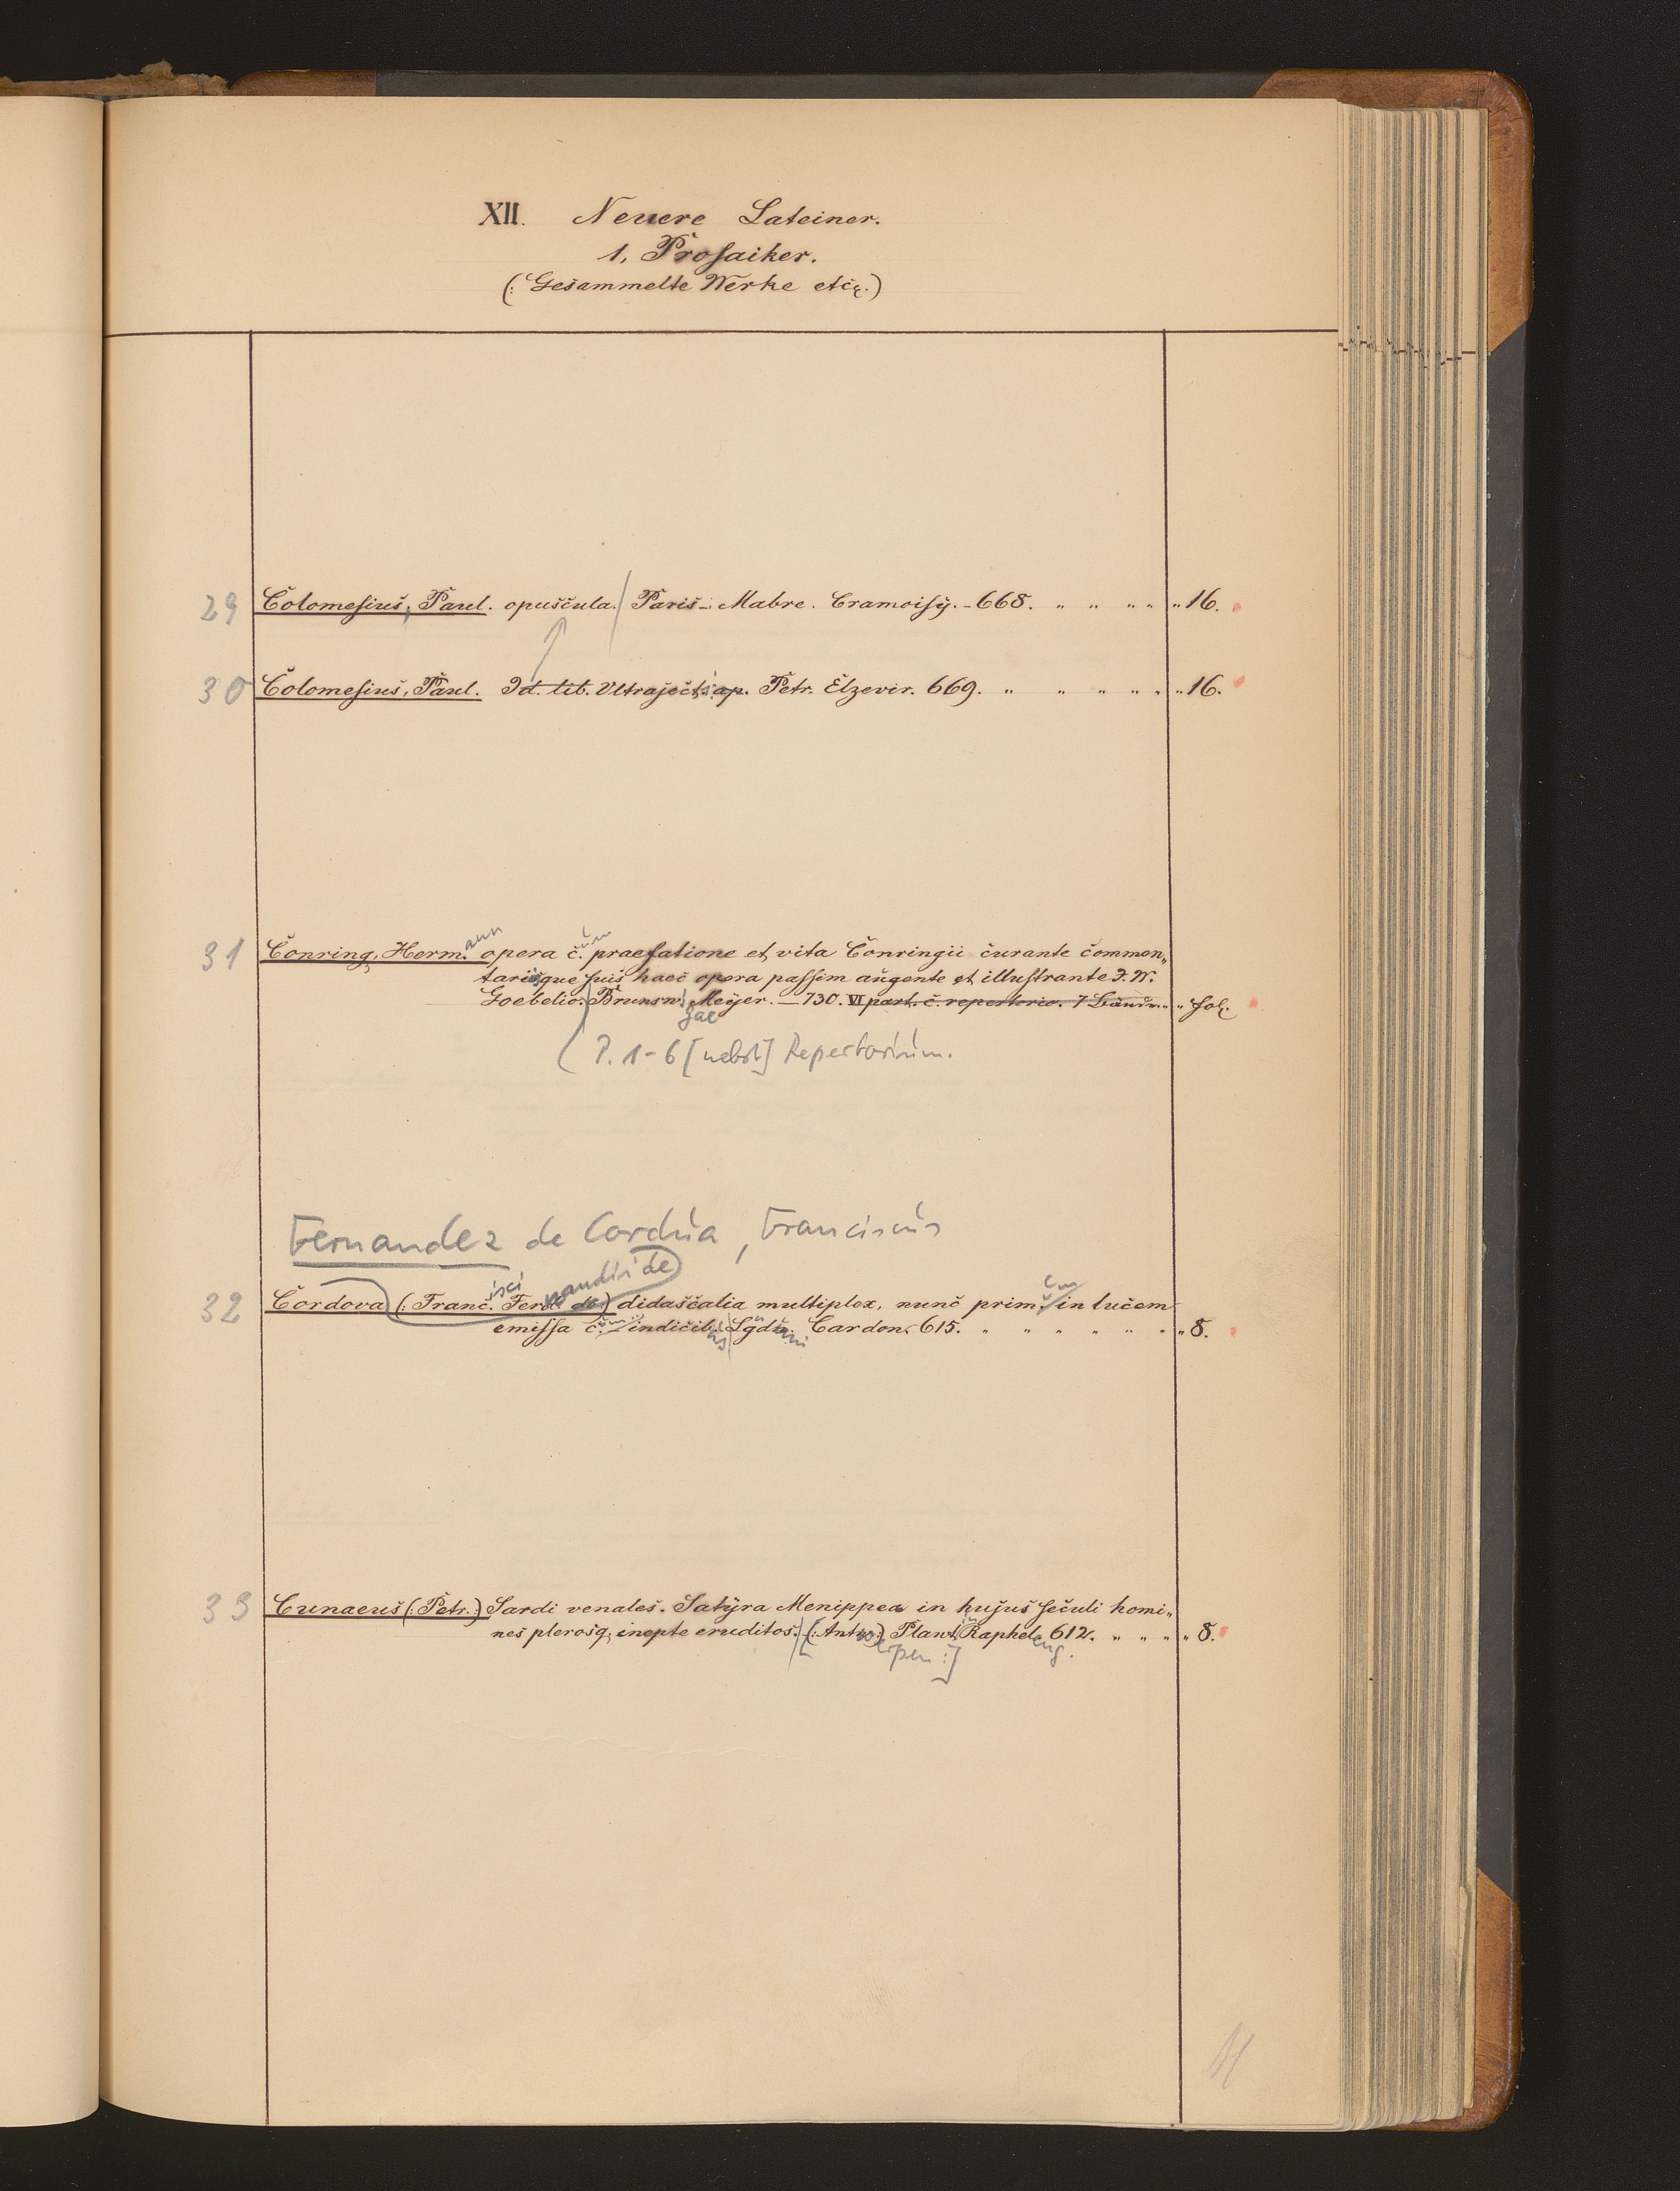 XII. Neuere Lateiner.
1, Prosaiker.
(: Gesammelte Werke etc.)
29 Colomesius, Paul. opuscula. Paris. Mabre. Cramoisy. - 668. " " " " " 16.
30 Colomesius, Paul. Id. lib. Ultraject. ap. Petr. Elzevir. 669. " " " " " " 16.
31 Conring, Hermann opera c.um praefatione et vita Conringii curante commen„
tariisque suis haec opera passim augente et illustrante J. W.
Goebelio. Brunsvigae Meyer. — 730. VI part. c. repertorio. 7 Bände. " " fol.
P. 1-6 [nebst] Repertorium.
Fernandez de Cordua, Franciscus
32 Cordova (: Francisci Ferd. de) didascalia multiplex, nunc primum in lucem
emissa c.um indicibus Lgduni Cardon. 615. " " " " " " " 8.
33 Cunaeus (: Petr.) Sardi venales. Satyra Menippea in hujus seculi homi„
nes plerosq, inepte eruditos. [(: Antwerpen :)] Plantin Rapheleng. 612. " " " " 8.